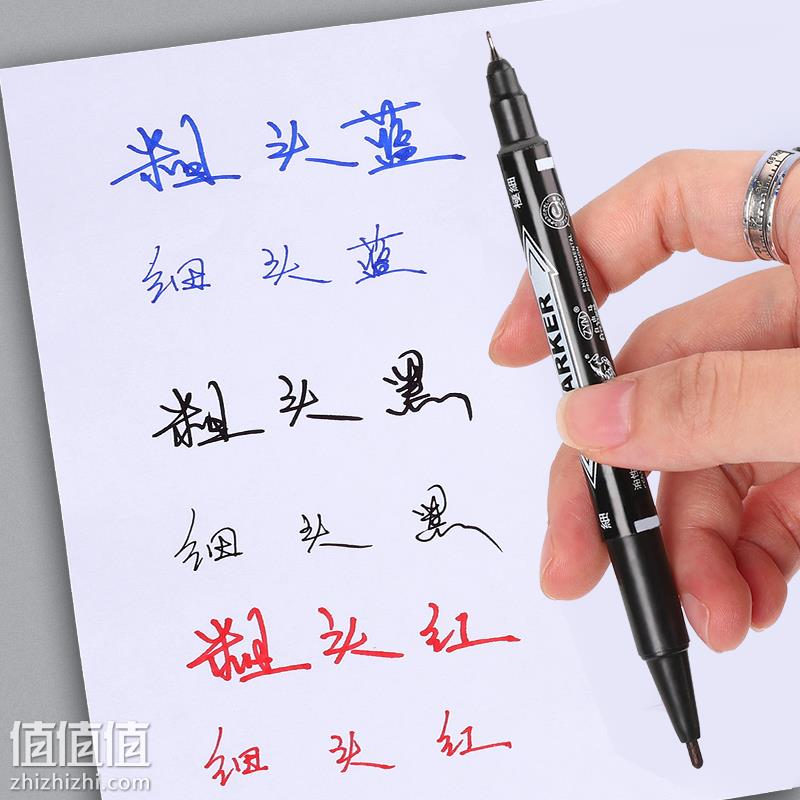 粗头蓝
细头蓝
粗头黑
细头黑
粗头红
细头红
極細
ARKER
ENVIRONMENTAL
ZXM
細
值值值
zhizhizhi.com